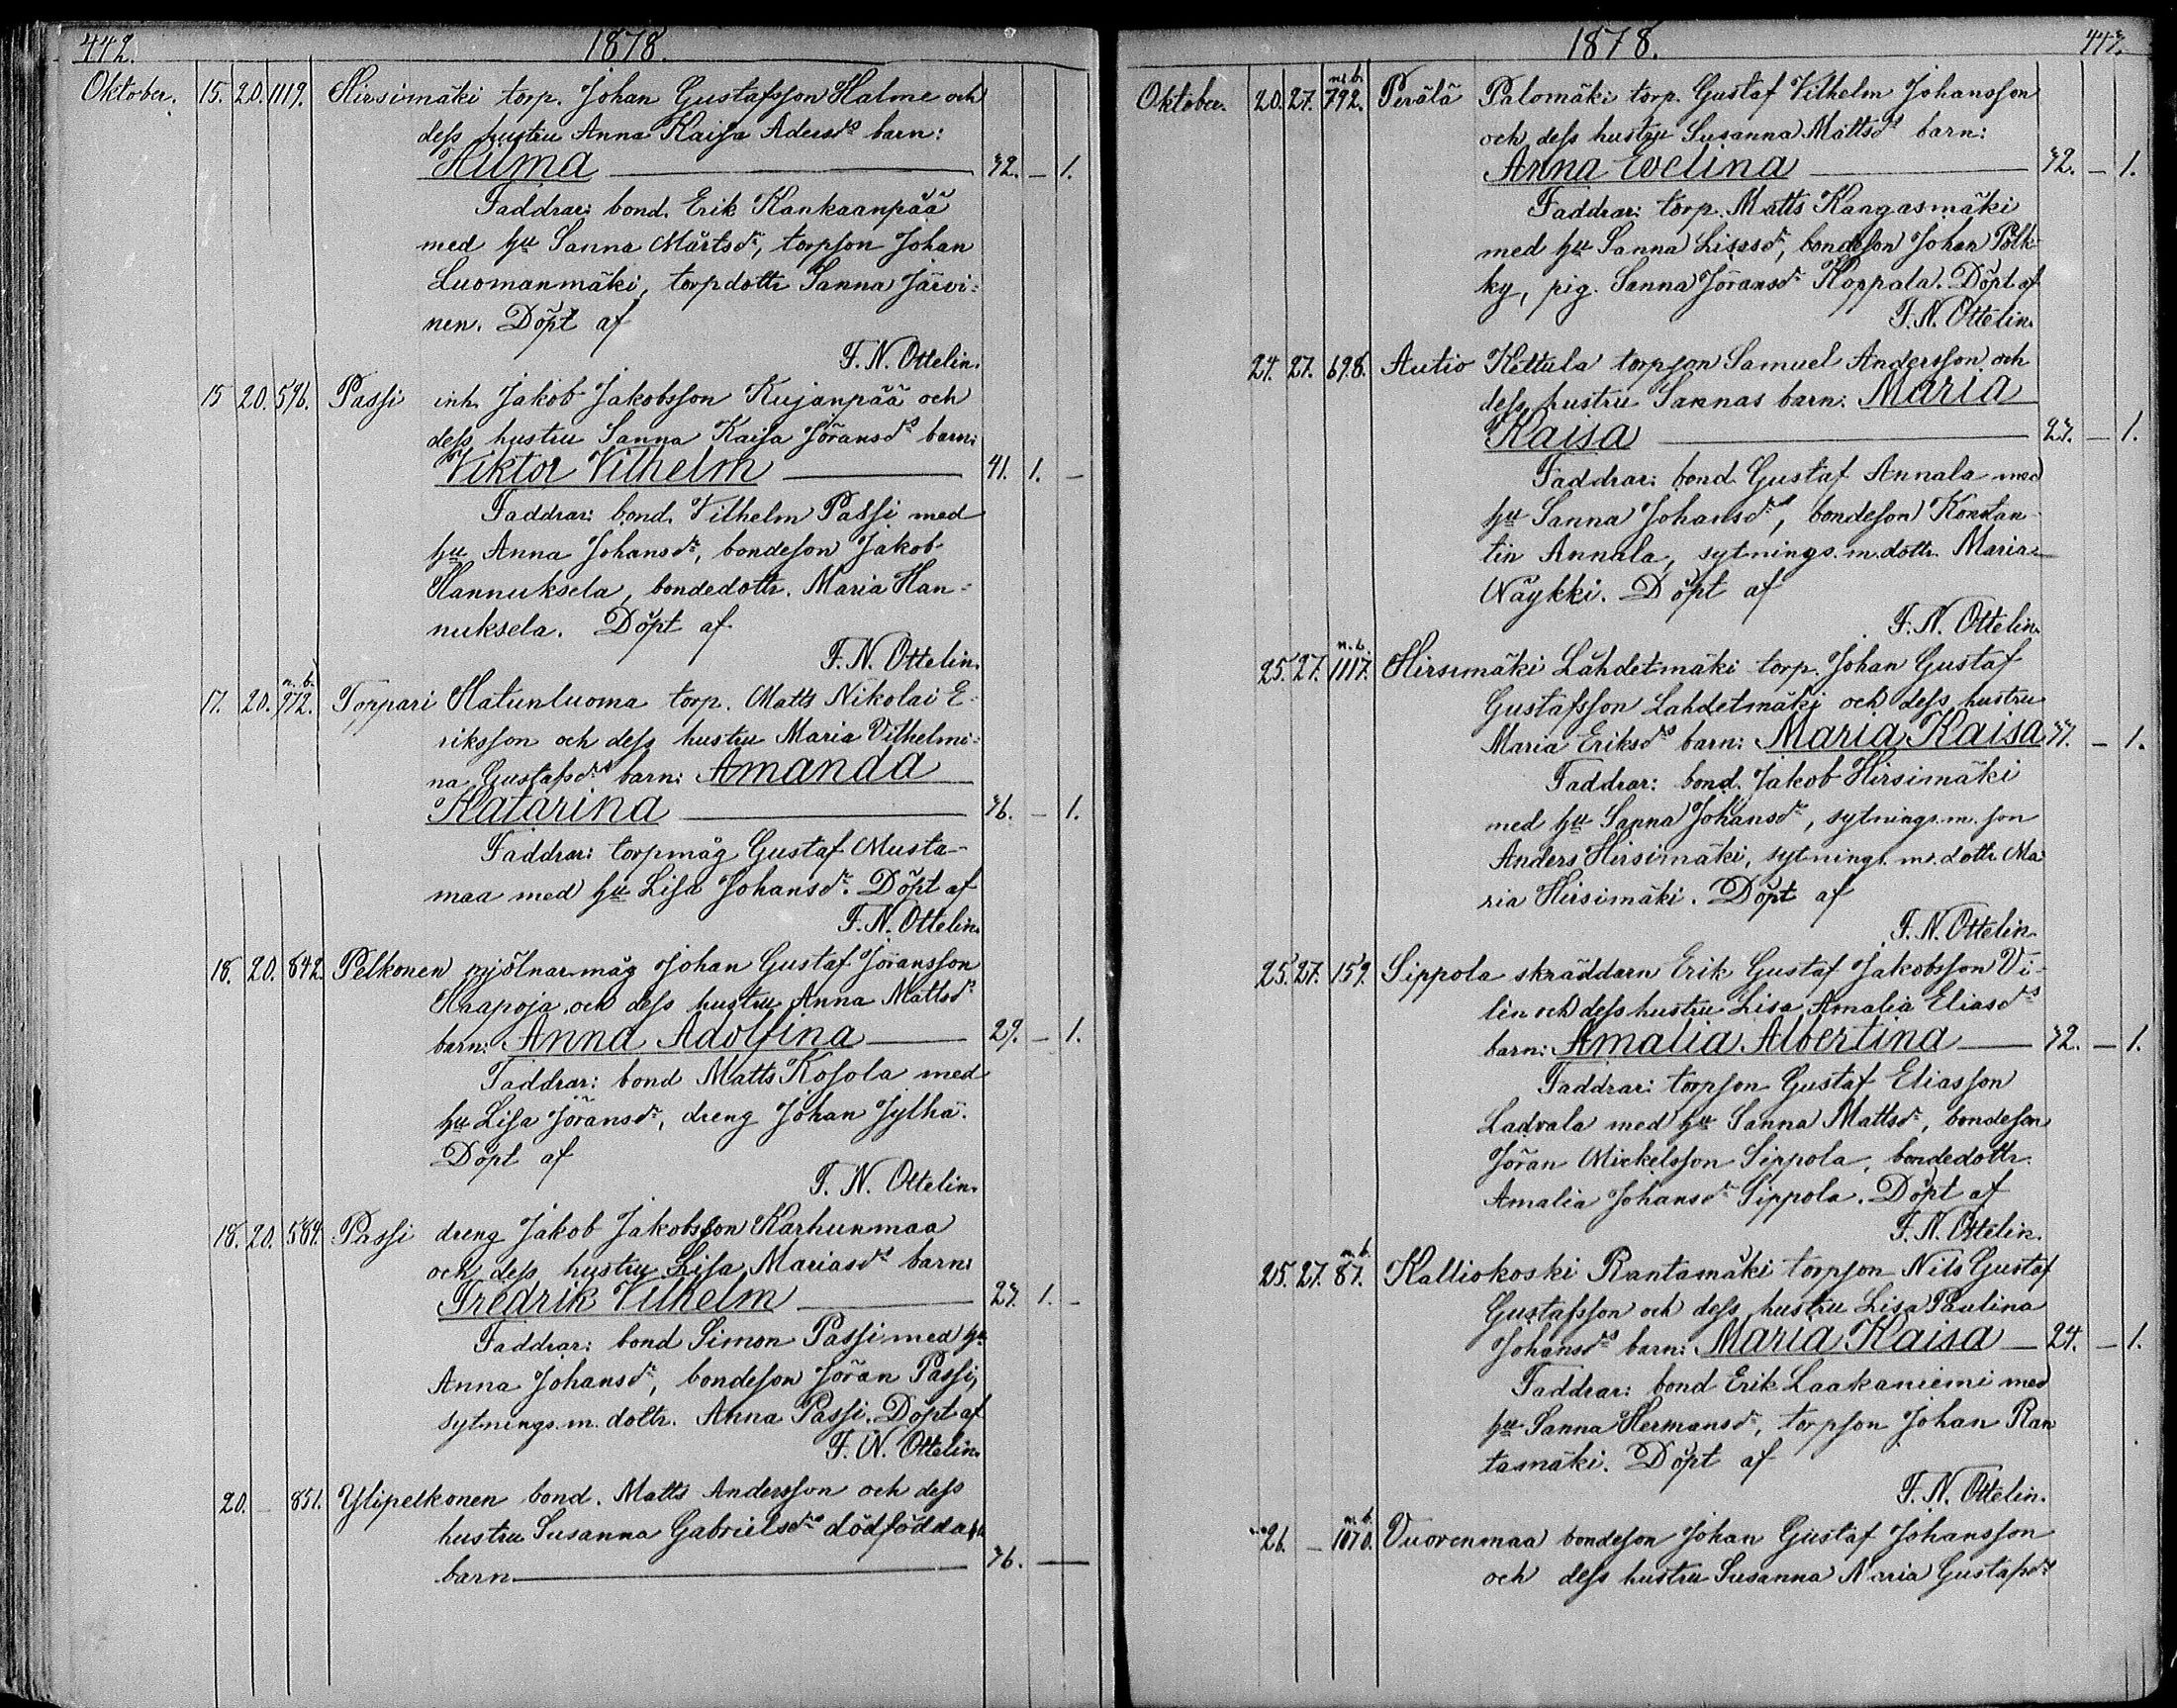 442.
1878.
Oktober. 15. 20. 1119. Hirsimäki torp. Johan Gustafsson Halme och
dess hustru Anna Kaisa Adersds barn:
Hilma 32. — 1.
Faddrar: bond. Erik Kankaanpää
med hu Sanna Mårtsdr, torpson Johan
Luomanmäki, torpdottr Sanna Järvi-
nen. Döpt af
F. N. Ottelin.
15 20. 596. Passi inh. Jakob Jakobsson Kujanpää och
dess hustru Sanna Kaisa Jöransds barn:
Viktor Vilhelm 41. 1. —
Faddrar: bond. Vilhelm Passi med
hu Anna Johansdr, bondeson Jakob
Hannuksela, bondedottr. Maria Han-
nuksela. Döpt af
F. N. Ottelin.
n. b.
17. 20. 972. Torppari Hatunluoma torp. Matts Nikolai E-
riksson och dess hustru Maria Vilhelmi-
na Gustafsds barn: Amanda
Katarina 36. — 1.
Faddrar: torpmåg Gustaf Musta-
maa med hu Lisa Johansdr. Döpt af
F. N. Ottelin.
18. 20. 842. Pelkonen mjölnarmåg Johan Gustaf Jöransson
Haapoja och dess hustru Anna Mattsds
barn: Anna Adolfina 29. — 1.
Faddrar: bond Matts Kosola med
hu Lisa Jöransdr, dreng Johan Jylhä.
Döpt af
F. N. Ottelin.
18. 20. 584. Passi dreng Jakob Jakobsson Karhunmaa
och dess hustru Lisa Mariasds barn:
Fredrik Vilhelm 27. 1. —
Faddrar: bond Simon Passi med hu
Anna Johansdr, bondeson Jöran Passi,
sytnings.m. dottr. Anna Passi. Döpt af
F. N. Ottelin.
20. — 851. Ylipelkonen bond. Matts Andersson och dess
hustru Susanna Gabrielsds dödfödda
barn 36. —
1878.
443.
n. b.
Oktober. 20. 27. 792. Perälä Palomäki torp. Gustaf Vilhelm Johansson
och dess hustru Susanna Mattsds barn:
Anna Evelina 32. — 1.
Faddrar: torp. Matts Kangasmäki
med hu Sanna Lisasdr, bondeson Johan Pölk-
ky, pig. Sanna Jöransdr Koppala. Döpt af
F. N. Ottelin.
24. 27. 698. Autio Kettula torpson Samuel Andersson och
dess hustru Sannas barn: Maria
Kaisa 27. — 1.
Faddrar: bond. Gustaf Annala med
hu Sanna Johansdr, bondeson Konstan-
tin Annala, sytnings.m.dottr. Maria
Näykki. Döpt af
F. N. Ottelin.
n. b.
25. 27. 1117. Hirsimäki Lähdetmäki torp. Johan Gustaf
Gustafsson Lähdetmäki och dess hustru
Maria Eriksds barn: Maria Kaisa 37. — 1.
Faddrar: bond. Jakob Hirsimäki
med hu Sanna Johansdr, sytnings.m. son
Anders Hirsimäki, sytnings.m. dottr. Ma-
ria Hirsimäki. Döpt af
F. N. Ottelin.
25. 27. 159. Sippola skräddarn Erik Gustaf Jakobsson Vi-
lin och dess hustru Lisa Amalia Eliasds
barn: Amalia Albertina 32. — 1.
Faddrar: torpson Gustaf Eliasson
Ladvala med hu Sanna Mattsdr, bondeson
Jöran Mickelsson Sippola, bondedottr.
Amalia Johansdr Sippola. Döpt af
F. N. Ottelin.
n. b.
25. 27. 87. Kalliokoski Rantamäki torpson Nils Gustaf
Gustafsson och dess hustru Lisa Paulina
Johansds barn: Maria Kaisa 24. — 1.
Faddrar: bond Erik Laakaniemi med
hu Sanna Hermansdr, torpson Johan Ran
tamäki. Döpt af
F. N. Ottelin.
n. b.
26. — 1070. Vuorenmaa bondeson Johan Gustaf Johansson
och dess hustru Susanna Maria Gustafsds